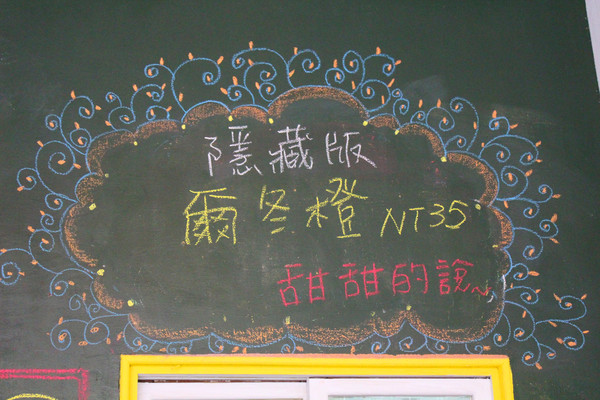 隱藏版
爾冬橙 NT35
甜甜的說~